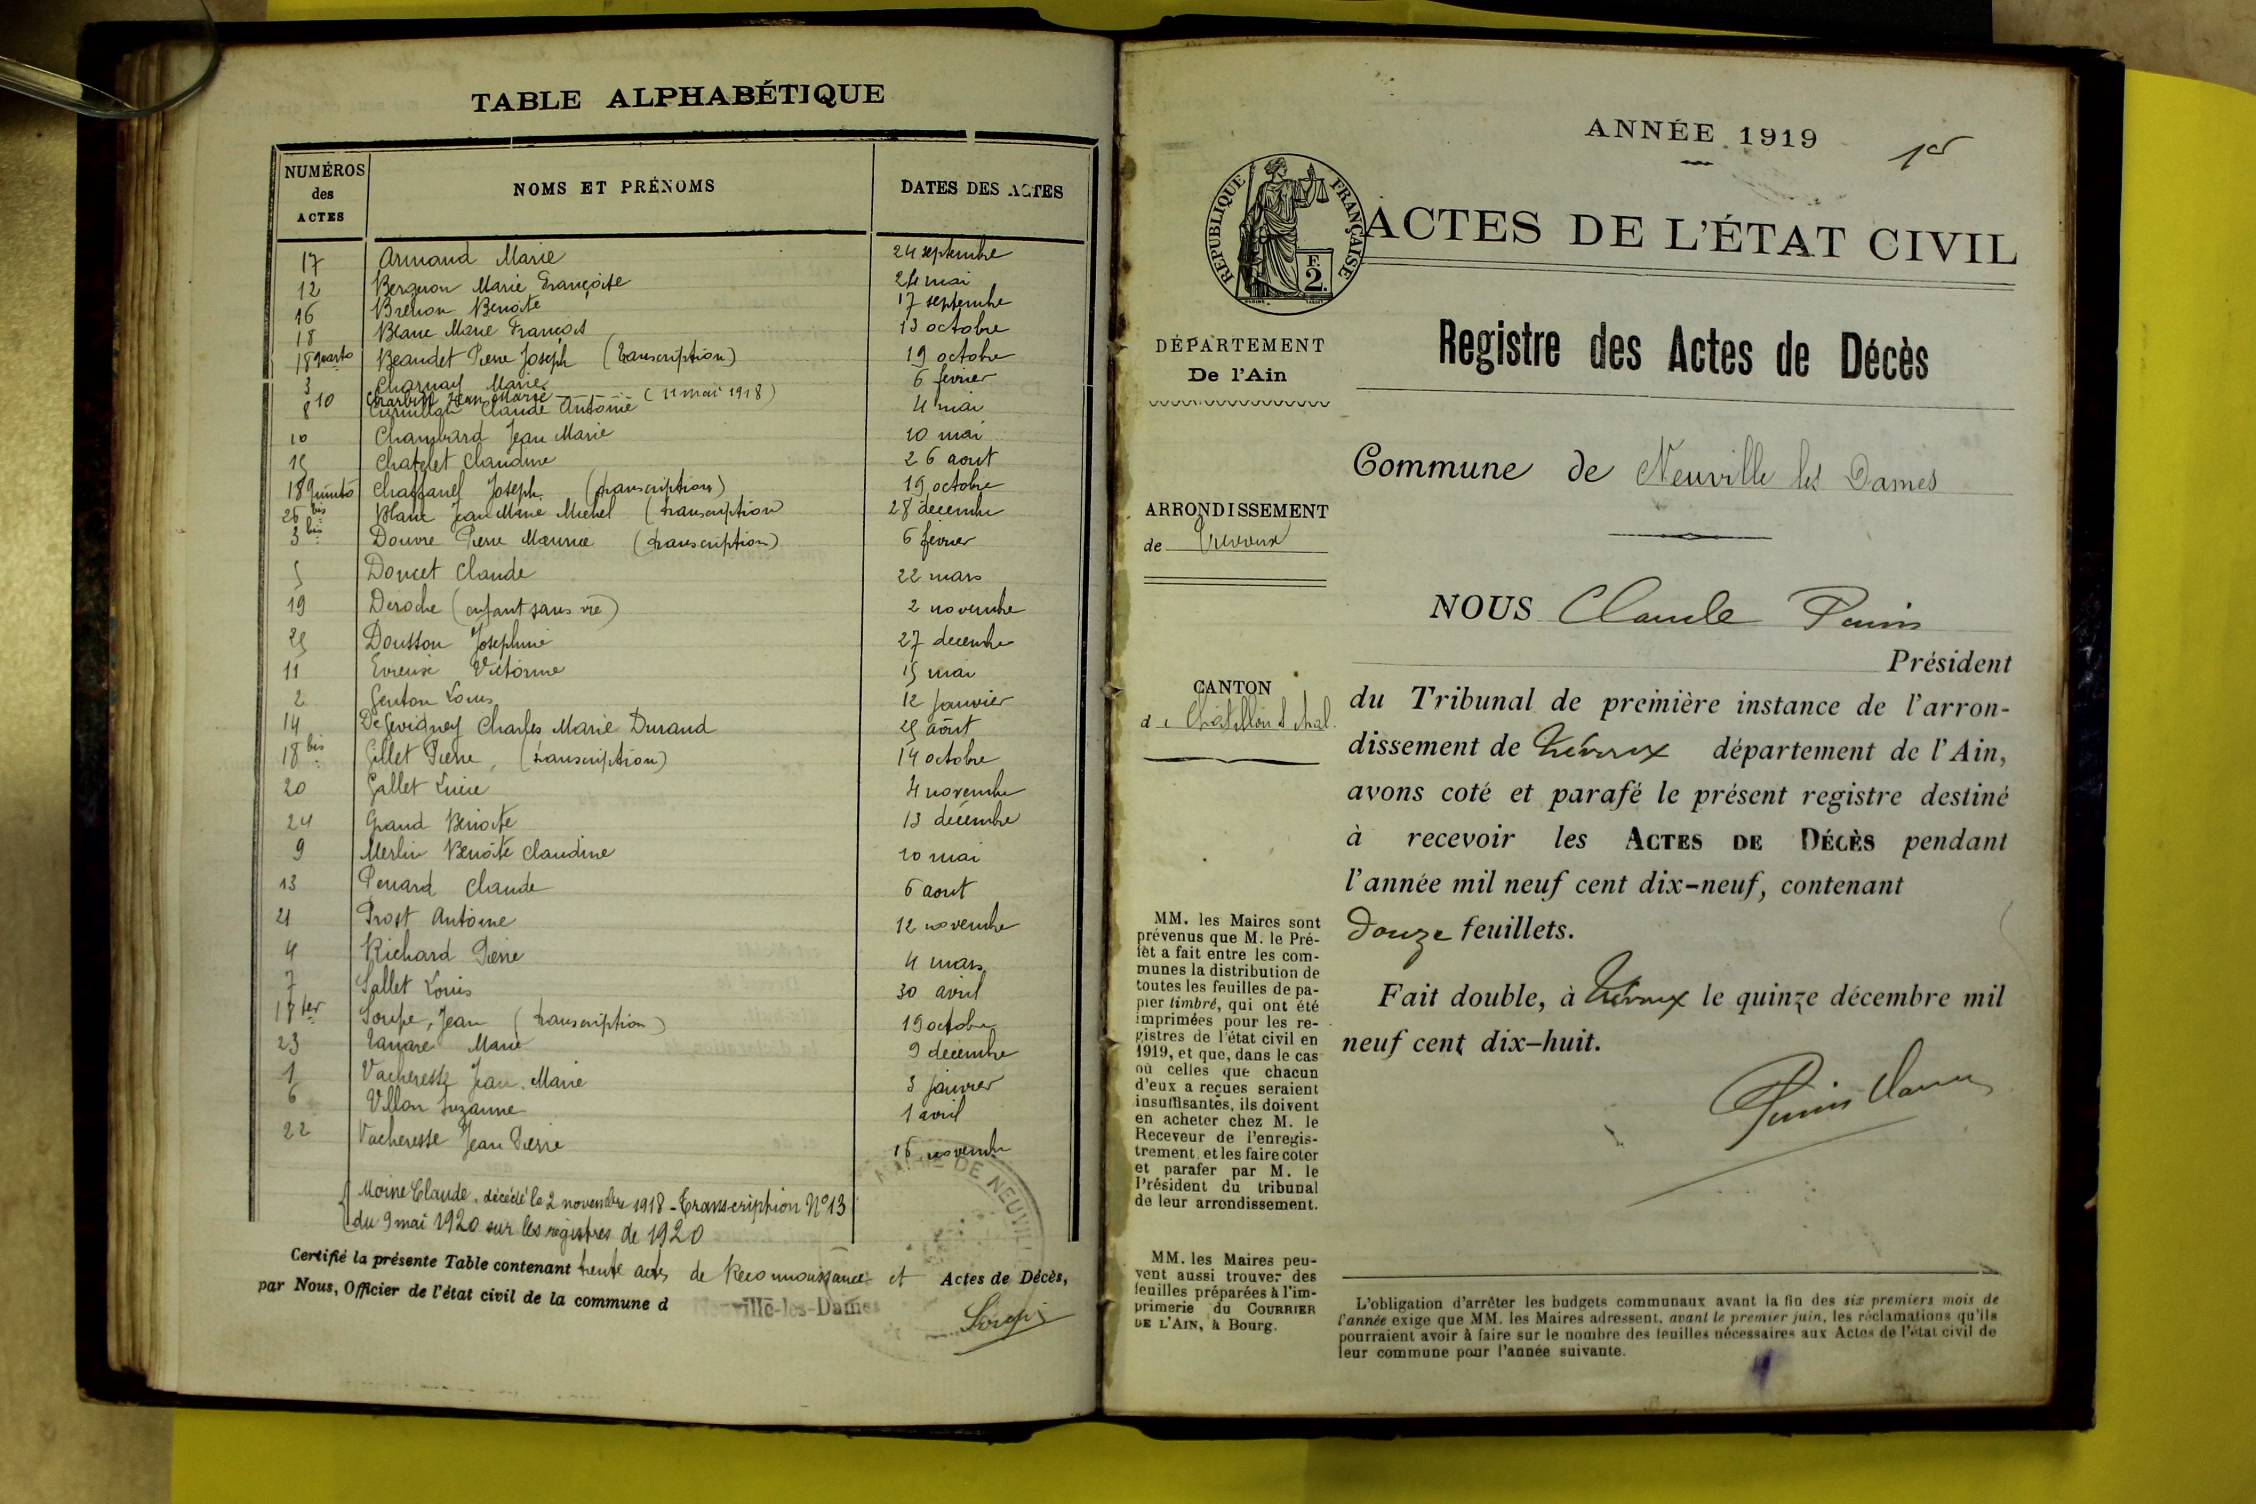 TABLE ALPHABÉTIQUE
NUMÉROS des ACTES NOMS ET PRÉNOMS DATES DES ACTES
17 Armand Marie 24 septembre
12 Bergeron Marie Françoise 24 mai
16 Brevon Benoite 17 septembre
18 Blanc Marie François 13 octobre
18 quarto Beaudet Pierre Joseph (transcription) 19 octobre
3 Charnay Marie 6 février
10 Jean Marie (11 mai 1918)
8 Claude Antoine 4 mai
10 Chambard Jean Marie 10 mai
15 Chatelet Claudine 26 aout
18 quinto Chaffanel Joseph (transcription) 19 octobre
26 bis Blanc Jean Marie Michel (transcription) 28 decembre
3 bis Douvre Pierre Maurice (transcription) 6 fevrier
5 Doucet Claude 22 mars
19 Deroche (enfant sans vie) 2 novembre
25 Dousson Josephine 27 decembre
11 Evreux Victorine 15 mai
2 Genton Louis 12 Janvier
14 De Sevigney Charles Marie Durand 25 août
18 bis Gillet Pierre, (transcription) 14 octobre
20 Gallet 4 novembre
24 Grand Benoite 13 décembre
9 Merlin Benoite Claudine 10 mai
13 Penard Claude 6 aout
21 Prost Antoine 12 novembre
4 Richard Pierre 4 mars
7 Sallet Louis 30 avril
18 ter Soupe, Jean (transcription) 19 octobre
23 Marie 9 décembre
1 Vacheresse Jean Marie 3 janvier
6 Villon Suzanne 1 avril
22 Vacheresse Jean Pierre 16 novembre
Moine Claude, décédé le 2 novembre 1918 - Transcription N° 13
du 9 mai 1920 sur les registres de 1920
Certifié la présente Table contenant trente actes de Reconnaissance et Actes de Décès,
par Nous, Officier de l'état civil de la commune d Neuville-les-Dames
MAIRIE DE NEUVILLE
ANNÉE 1919
1er
RÉPUBLIQUE FRANÇAISE
F. 2.
ACTES DE L'ÉTAT CIVIL
Registre des Actes de Décès
DÉPARTEMENT
De l'Ain
Commune de Neuville les Dames
ARRONDISSEMENT
de Trevoux
NOUS Claude
Président
CANTON
de Châtillon s Chal.
du Tribunal de première instance de l'arron-
dissement de Trévoux département de l'Ain,
avons coté et parafé le présent registre destiné
à recevoir les ACTES DE DÉCÈS pendant
l'année mil neuf cent dix-neuf, contenant
Douze feuillets.
Fait double, à Trévoux le quinze décembre mil
neuf cent dix-huit.
MM. les Maires sont
prévenus que M. le Pré-
fet a fait entre les com-
munes la distribution de
toutes les feuilles de pa-
pier timbré, qui ont été
imprimées pour les re-
gistres de l'état civil en
1919, et que, dans le cas
où celles que chacun
d'eux a reçues seraient
insuffisantes, ils doivent
en acheter chez M. le
Receveur de l'enregis-
trement, et les faire coter
et parafer par M. le
Président du tribunal
de leur arrondissement.
MM. les Maires peu-
vent aussi trouver des
feuilles préparées à l'im-
primerie du COURRIER
DE L'AIN, à Bourg.
L'obligation d'arrêter les budgets communaux avant la fin des six premiers mois de
l'année exige que MM. les Maires adressent, avant le premier juin, les réclamations qu'ils
pourraient avoir à faire sur le nombre des feuilles nécessaires aux Actes de l'état civil de
leur commune pour l'année suivante.